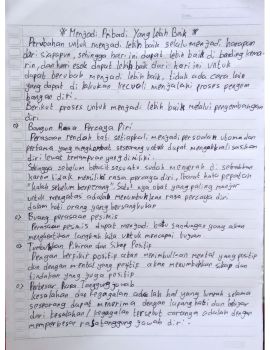 * Menjadi Pribadi Yang lebih Baik *
Perubahan untuk menjadi lebih baik selalu menjadi harapan
dari siapapun, sehingga hari ini dapat lebih baik di banding kema-
rin, dan hari esok dapat lebih baik dari hari ini untuk
dapat berubah menjadi lebih baik, tidak ada cara lain
yang dapat di lakukan kecuali menjalani proses pengem
bangan diri.
Berikut proses untuk menjadi lebih baik melalui pengembangan
diri.
Bangun Rasa Percaya Diri
Perasaan rendah hati setiap kali menjadi persoalan utama dan
pertama yang menghambat seseorang untuk dapat mengaktualisasikan
diri lewat kemampuan yang dimiliki.
Sehingga sebelum berbuat sesuatu sudah menyerah di sebabkan
karena tidak memiliki rasa percaya diri, ibarat kata pepatah
"kalah sebelum berperang". Salah satu obat yang paling manjur
untuk mengatasi adalah menumbuhkan rasa percaya diri
dalam hati orang yang bersangkutan
Buang perasaan pesimis
Perasaan pesimis dapat menjadi batu sandungan yang akan
menghentikan langkah kita untuk mencapai tujuan
Tumbuhkan Pikiran dan Sikap Positif
Pengan berpikir positif akan menimbulkan mental yang positif
dan dengan mental yang positif akan menumbuhkan sikap dan
tindakan yang juga positif
Perbesar Rasa Tanggung jawab
kesalahan dan kegagalan adalah hal yang lumrah selama
seseorang dapat menerima dengan lapang hati dan belajar
dari kesalahan / kegagalan tersebut caranya adalah dengan
memperbesar rasa tanggung jawab diri.